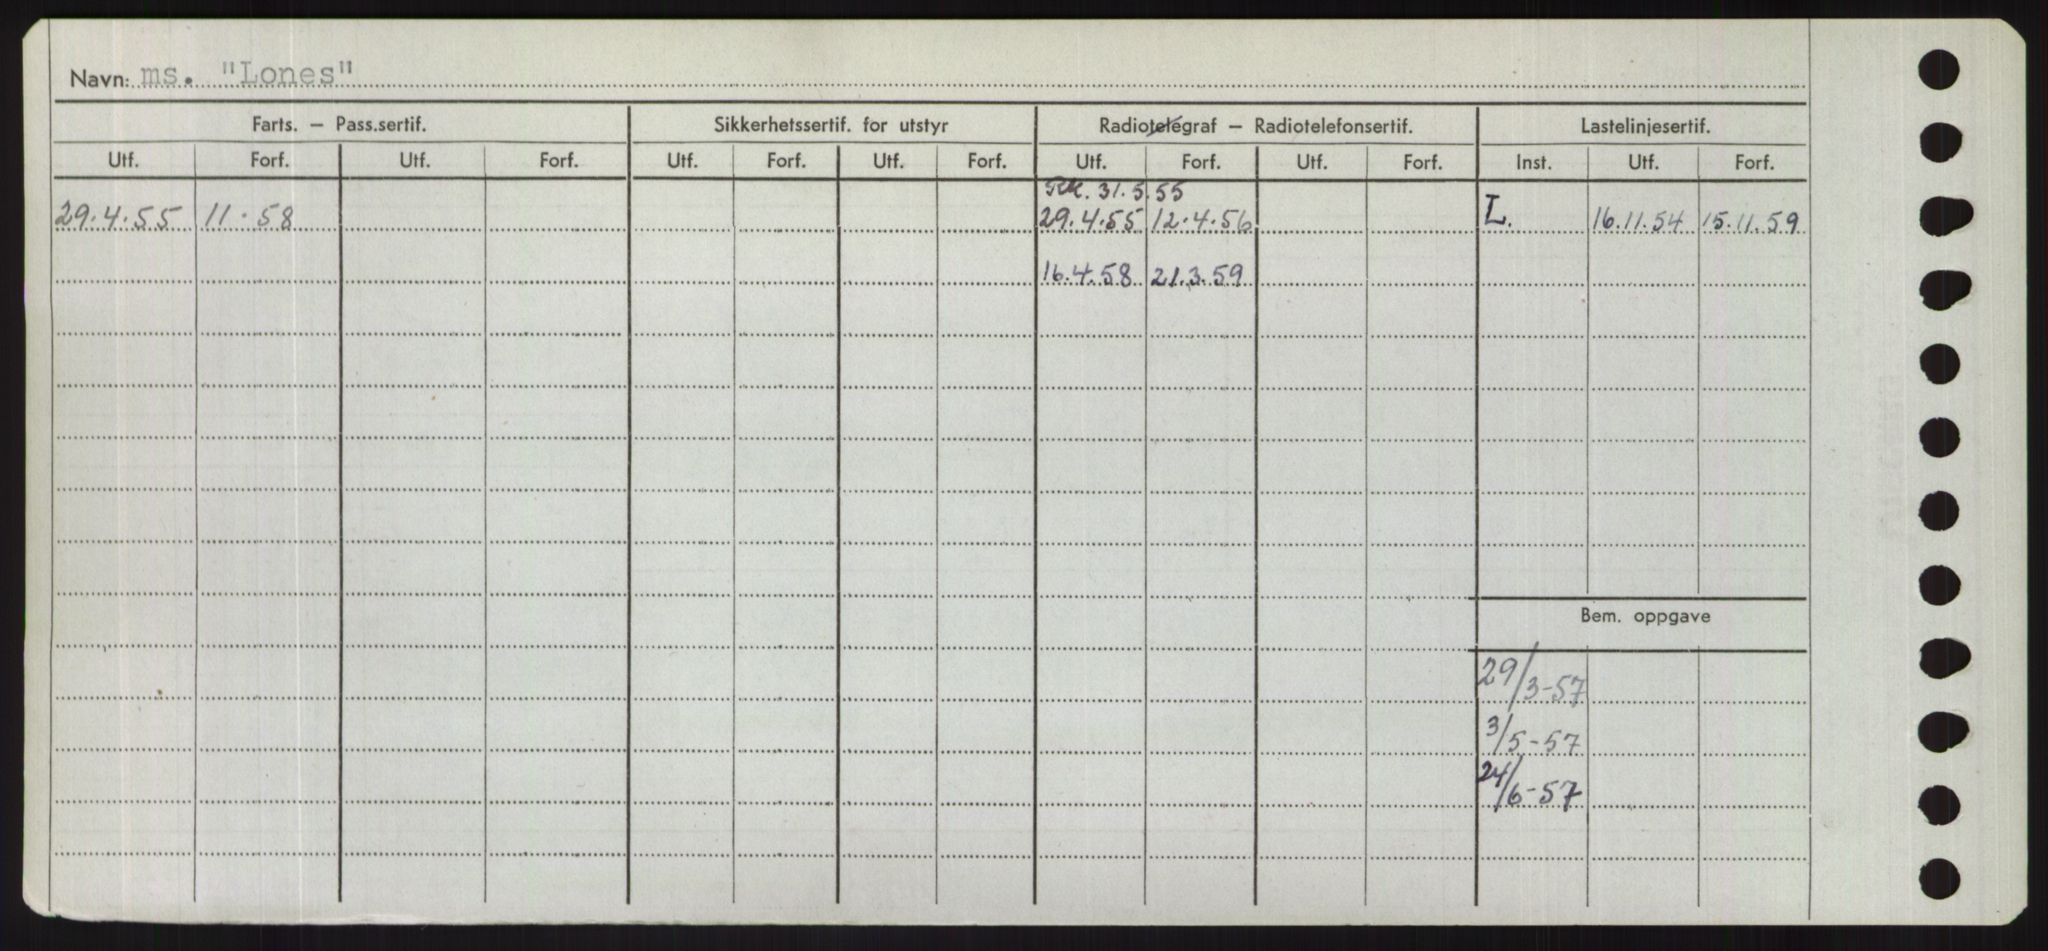 Navn: ms. "Lones"
Farts. — Pass.sertif. Sikkerhetssertif. for utstyr Radiotelegraf — Radiotelefonsertif. Lastelinjesertif.
Utf. Forf. Utf. Forf. Utf. Forf. Utf. Forf. Utf. Forf. Utf. Forf. Inst. Utf. Forf.
31.5.55
29.4.55 11.58 29.4.55 12.4.56 L. 16.11.54 15.11.59
16.4.58 21.3.59
Bem. oppgave
29/3-57
3/5-57
24/6-57